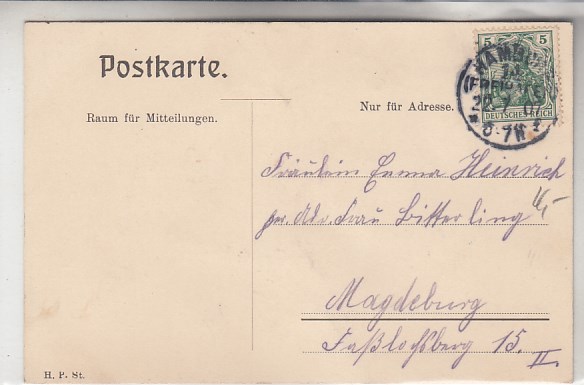 Postkarte.
Raum für Mitteilungen.
Nur für Adresse.
5 5
DEUTSCHES REICH
HAMBURG
22.7.07
*6-7N*
Fräulein Emma Heinrich
per Adr. Frau Bitterling
Magdeburg
Faßlochsberg 15.
II.
H. P. St.